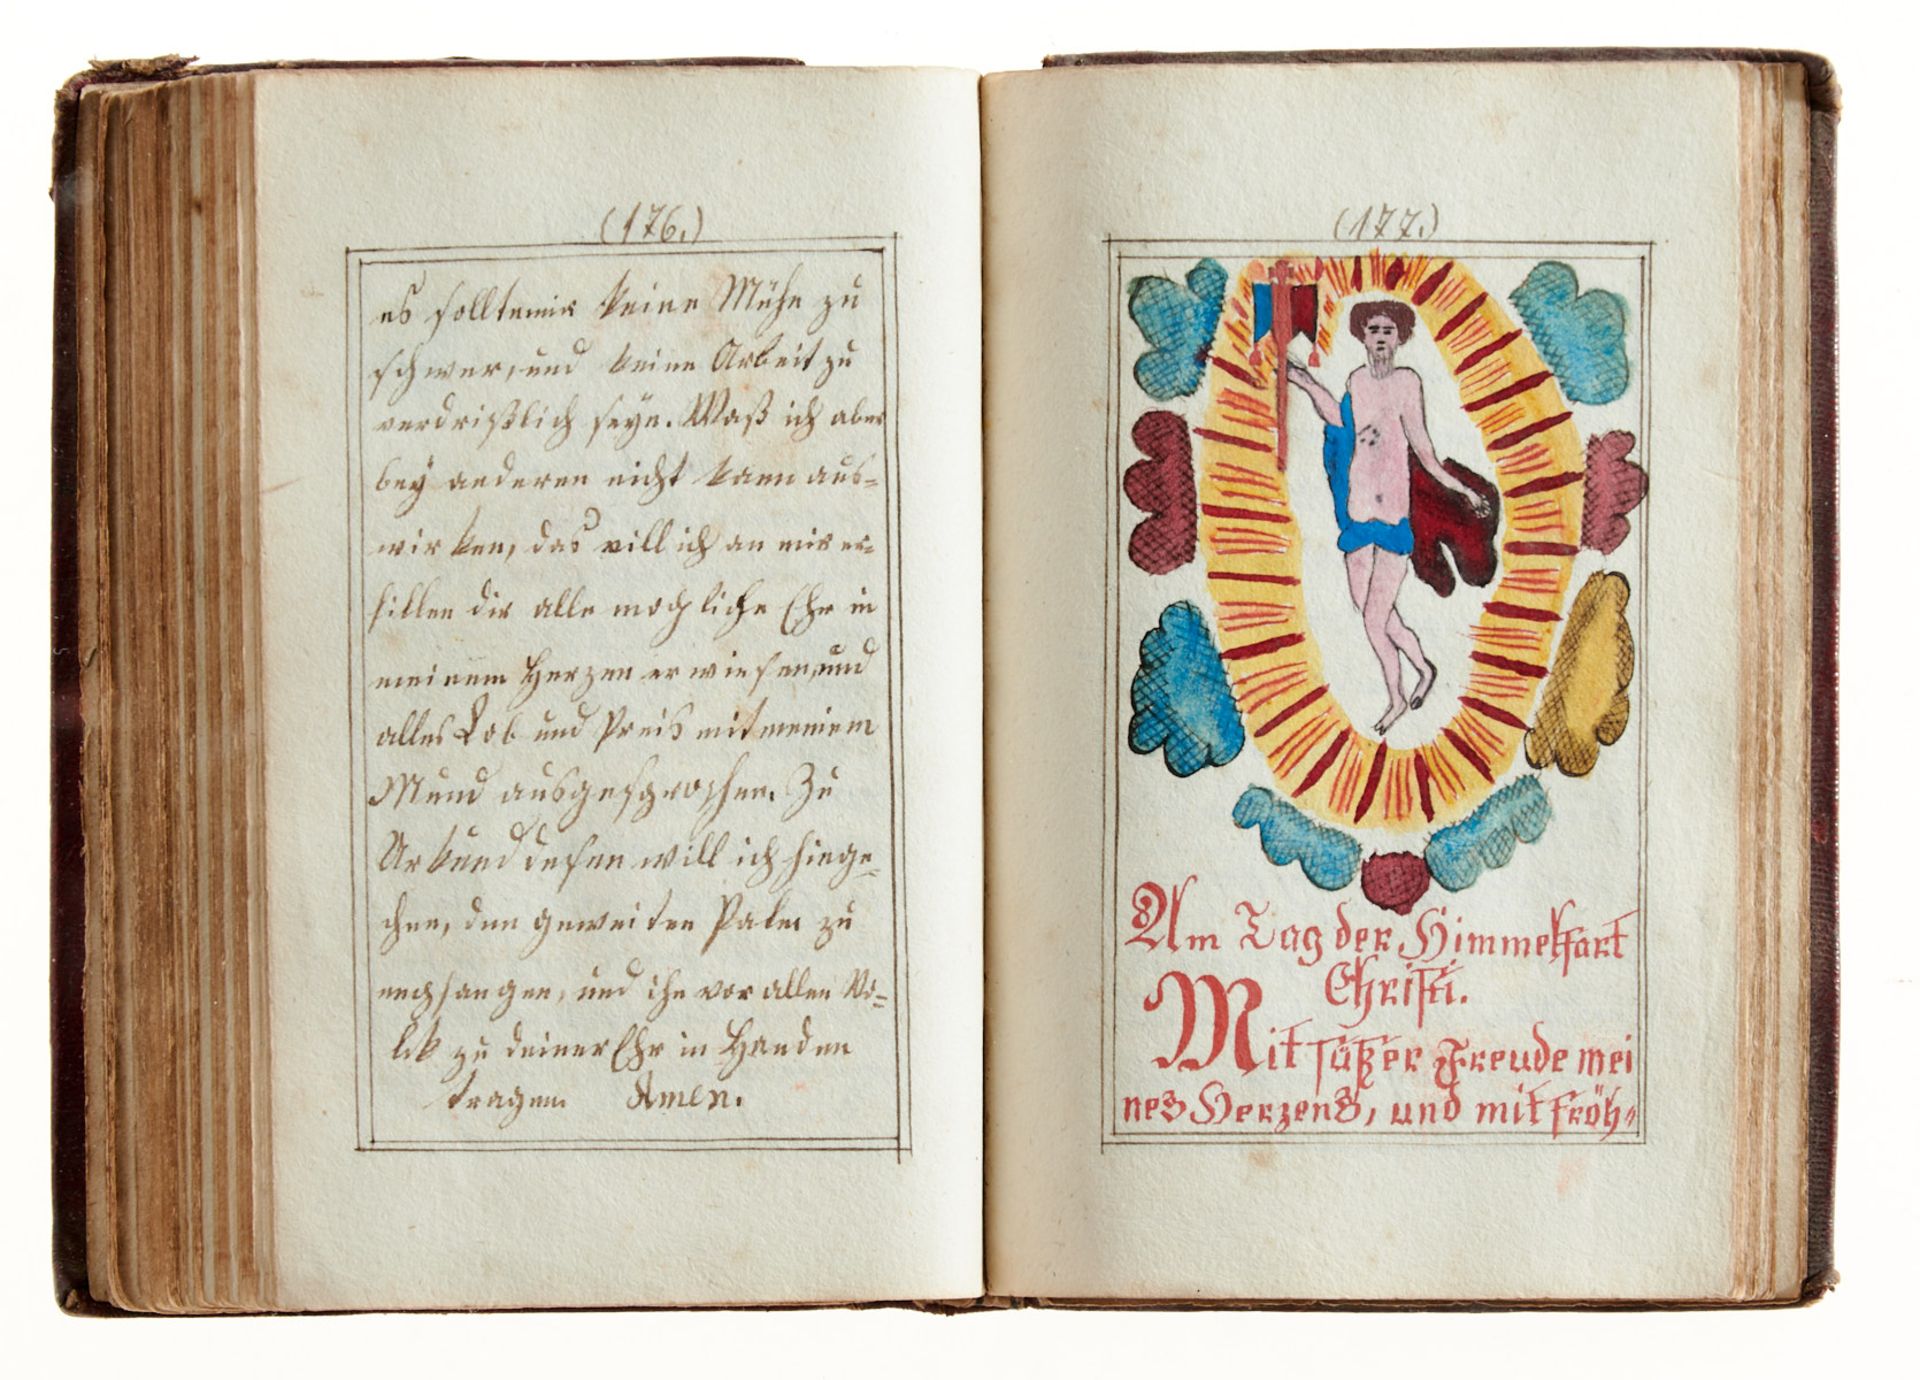 (176.)
es solltemir keine Mühe zu
schwer, und keine Arbeit zu
verdrißlich seyn. Waß ich aber
bey anderen nicht kann aus=
wirken, das will ich an mir er=
fillen dir alle mogliche Ehr in
meinem Herzen erwiesen, und
alles Lob und Preis mit meniem
Mund ausgesprochen. Zu
Urkund desen will ich hinge=
chen, den geweiten Palm zu
empfangen, und ihn vor allen Vo=
lck zu deiner Ehr in Handen
tragen Amen.
(177.)
Am Tag der Himmelfart
Christi.
Mit süßer Freude mei
nes Herzens, und mit fröh=